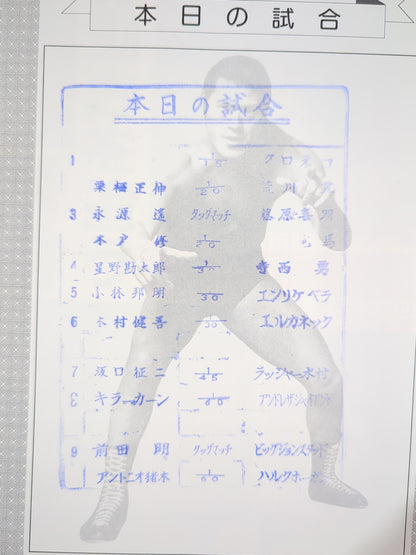 本日の試合
本日の試合
1 1/15 クロネコ
栗栖正伸 1/20 荒川
3 永源遙 タッグマッチ
木戸修 1/20
4 星野勘太郎 寺西勇
5 小林邦明 1/30 エンリケベラ
6 木村健吾 1/30 エルカネック
7 坂口征二 1/45 ラッシャー木村
キラーカーン 1/60 アンドレザジャイアント
9 前田明 タッグマッチ ビッグジョンスタッド
アントニオ猪木 1/60 ハルクホーガン